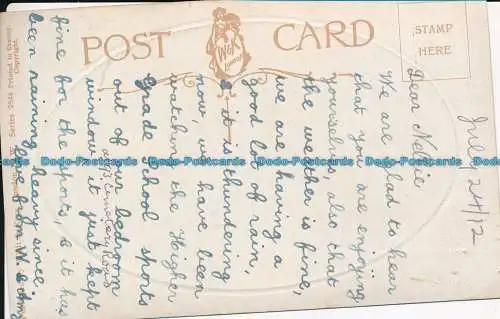 POST CARD
STAMP
HERE
W&K
London
Series 2514 Printed in Saxony
Copyright.
July 24/12
Dear Nellie
We are glad to hear
that you are enjoying
yourselves, also that
the weather is fine,
we are having a
Good lot of rain,
& it is thundering
now, we have been
watching the Higher
Grade School sports
out of our bedroom
window it just kept
fine for the sports, & it has
been raining heavy since
from W. & Amy
Cemetery Road
Dodo-Postcards